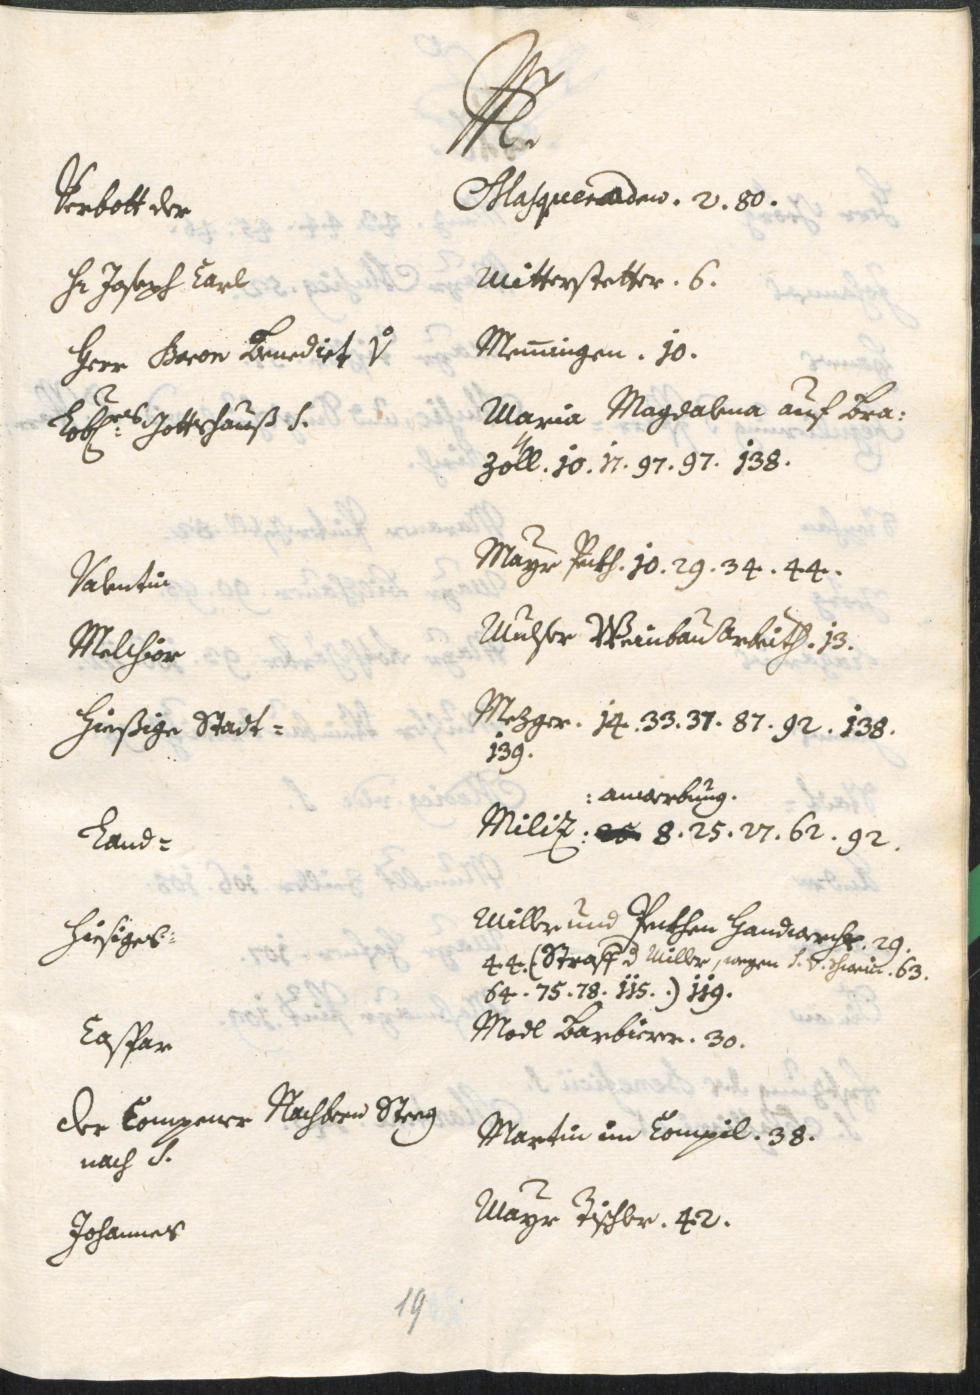 M.
Verbott der Masqueraden. 2. 80.
Hr Joseph Carl Mitterstetter. 6.
Herr Baron Benedict v Memingen. 10.
Lobl: Gottshauß S. Maria Magdalena auf Bra:
zöll. 10. 17. 97. 97. 138.
Valentin Mayr Peckh. 10. 29. 34. 44.
Melchior Mulser Weinbau Arbeith. 13.
Hießige Stadt= Mezger. 14. 33. 37. 87. 92. 138.
139.
: anwerbung.
Land= Miliz: 8. 25. 27. 62. 92.
Hiesiges: Miller und Pekhen Handwerch. 29.
44. (Straff d Miller, wegen S. V. Schwein. 63.
64. 75. 78. 115. .) 119.
Caspar Modl Barbierer. 30.
der Compener Nachbern Steeg Martin im Compil. 38.
nach S.
Johannes Mayr Tischler. 42.
19